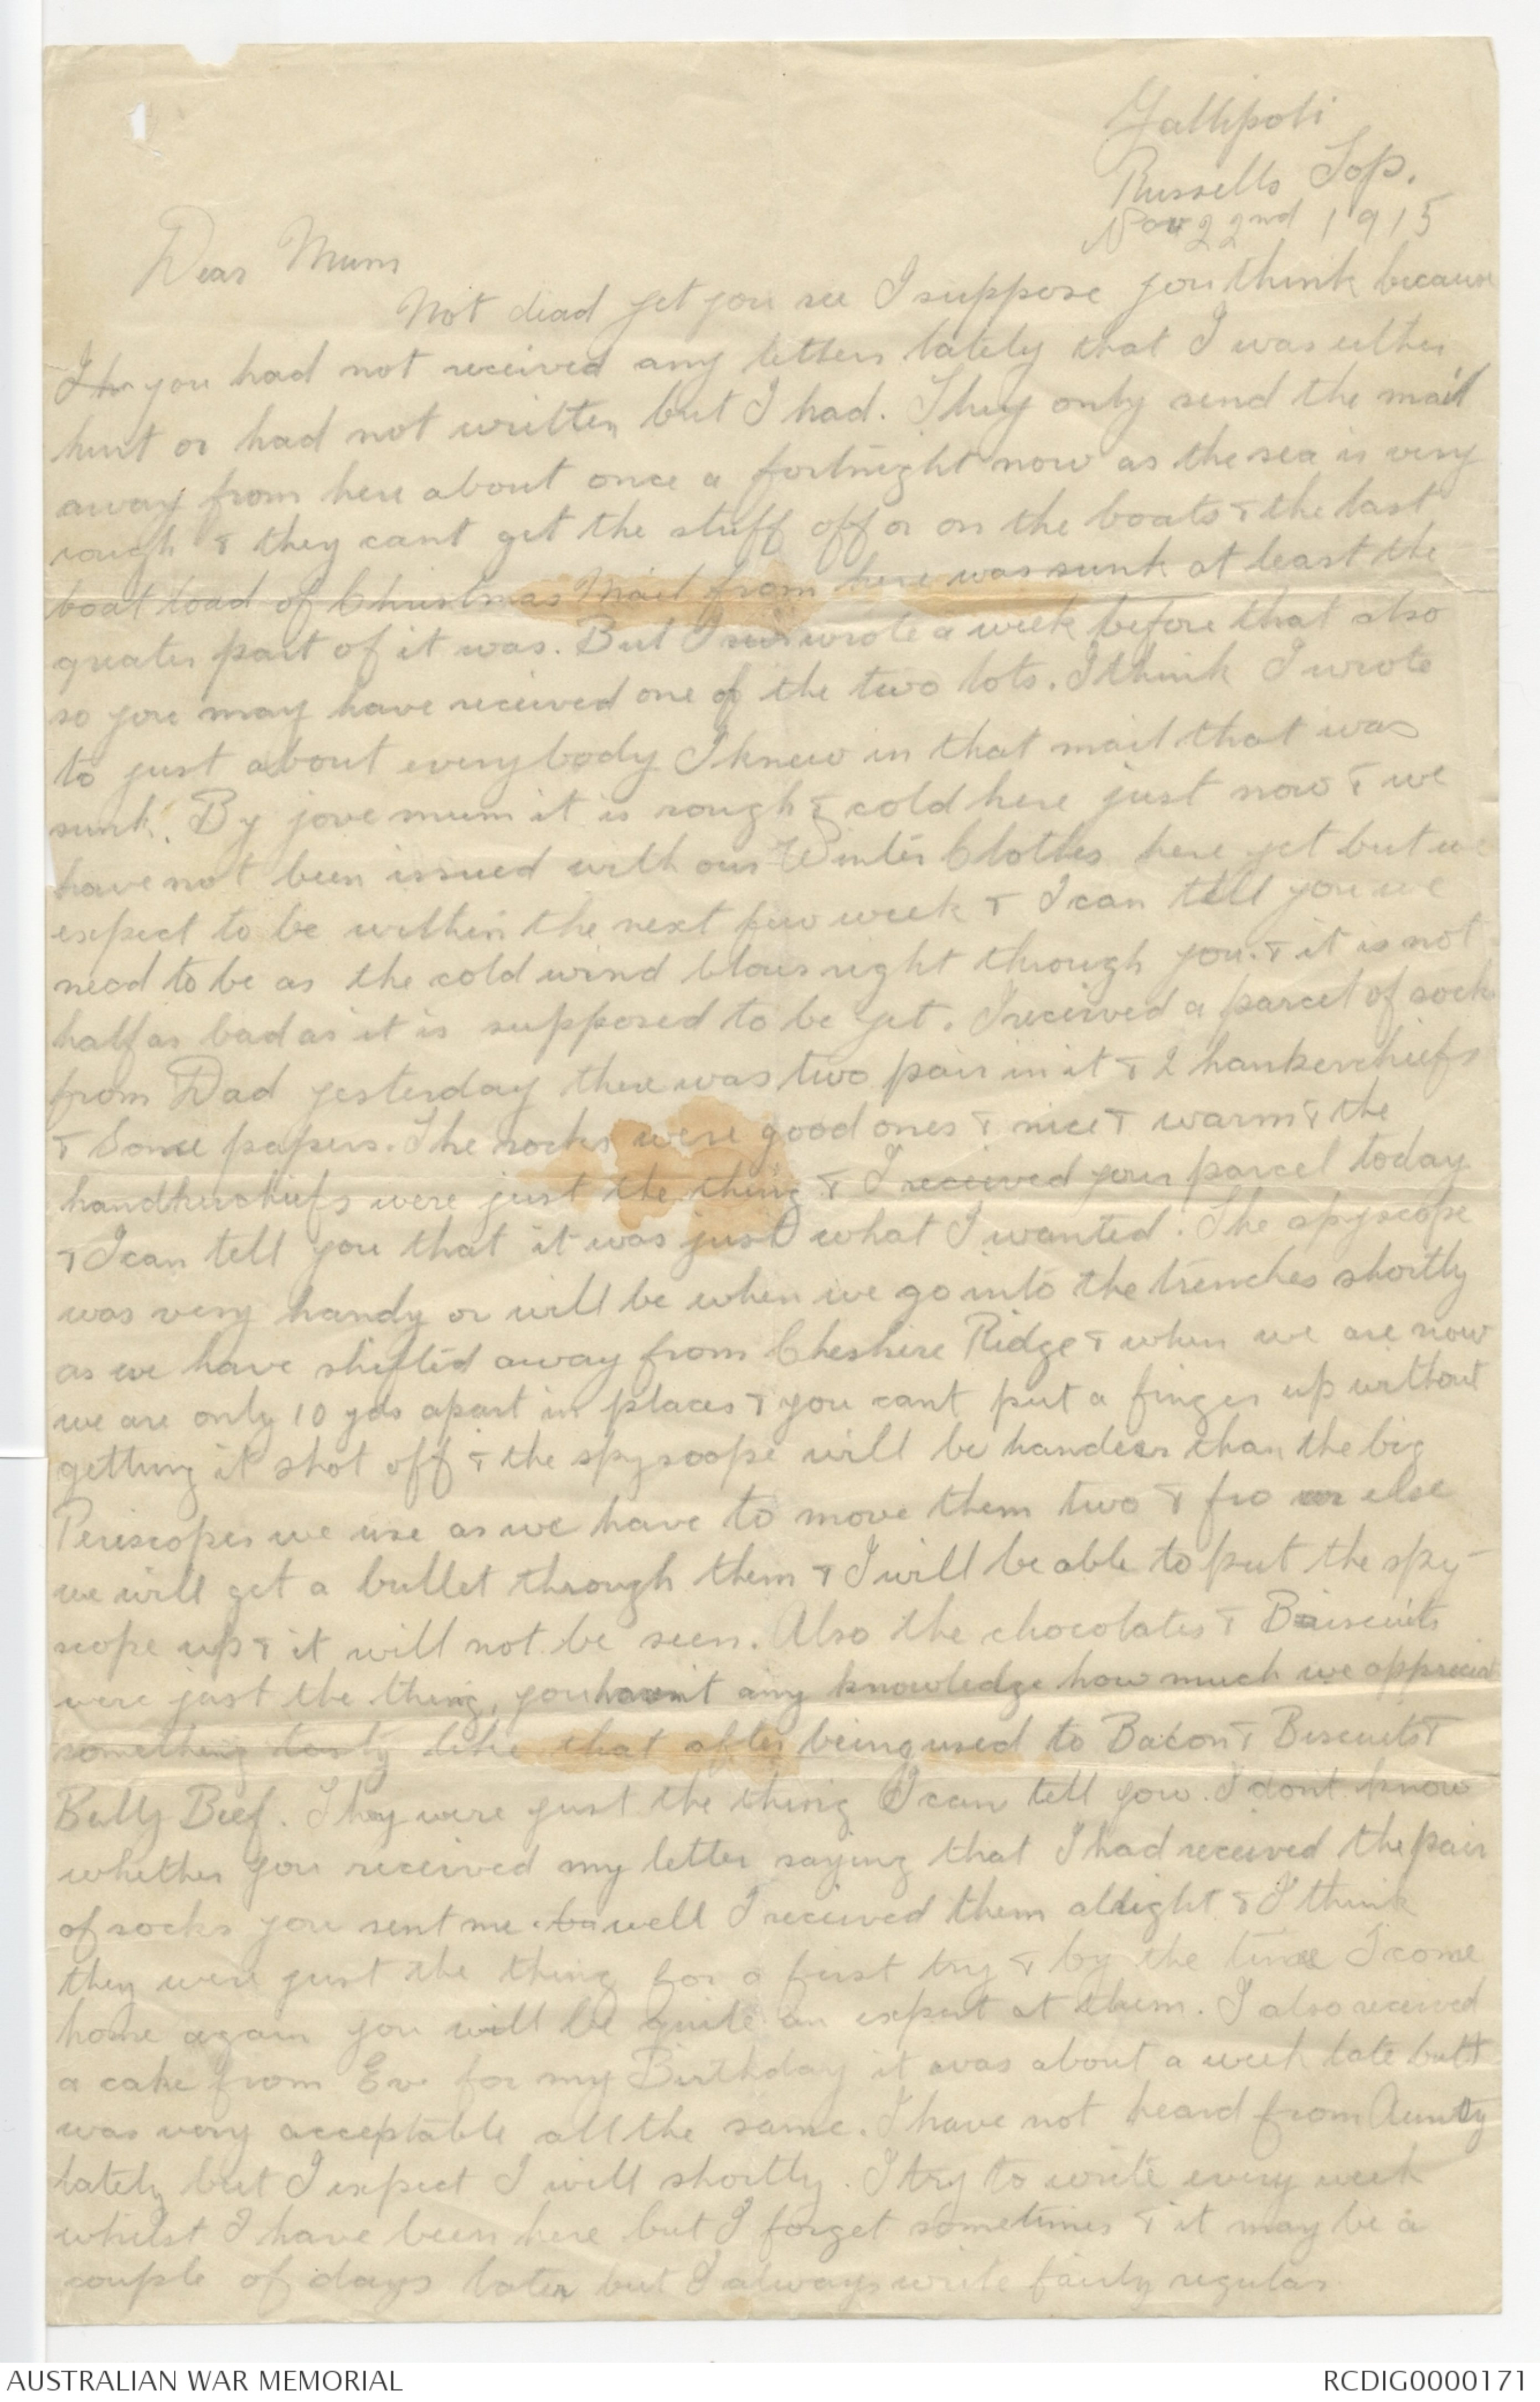 Gallipoli
Russells Top.
Nov 22nd 1915
Dear Mum
Not dead yet you see I suppose you think because
I ha you had not received any letters lately that I was either
hurt or had not written but I had. They only send the mail
away from here about once a fortnight now as the sea is very
rough & they cant get the stuff off or on the boats & the last
boat load of Christmas Mail from here was sunk at least the
greater part of it was. But I wrote a week before that also
so you may have received one of the two lots. I think I wrote
to just about everybody I knew in that mail that was
sunk. By jove mum it is rough & cold here just now & we
have not been issued with our Winter Clothes here yet but we
expect to be within the next few week & I can tell you we
need to be as the cold wind blows right through you. & it is not
half as bad as it is supposed to be yet. I received a parcel of socks
from Dad yesterday there was two pair in it & 2 hankerchiefs
& Some papers. The socks were good ones & nice & warm & the
handkerchiefs were just the thing & I received your parcel today
& I can tell you that it was just what I wanted. The spyscope
was very handy or will be when we go into the trenches shortly
as we have shifted away from Cheshire Ridge & when we are now
we are only 10 yds apart in places & you cant put a finger up without
getting it shot off & the spyscope will be handier than the big
Periscopes we use as we have to move them two & fro or else
we will get a bullet through them & I will be able to put the spy-
scope up & it will not be seen. Also the chocolates & Biscuits
were just the thing, you havent any knowledge how much we appreciate
something tasty like that after being used to Bacon & Biscuits &
Bully Beef. They were just the thing I can tell you. I dont know
whether you received my letter saying that I had received the pair
of socks you sent me. well I received them allright & I think
they were just the thing for a first try & by the time I come
home again you will be quite an expert at them. I also received
a cake from Ev for my Birthday it was about a week late butt
was very acceptable all the same. I have not heard from Aunty
lately but I expect I will shortly. I try to write every week
whilst I have been here but I forget sometimes & it may be a
couple of days later but I always write fairly regular
AUSTRALIAN WAR MEMORIAL
RCDIG0000171